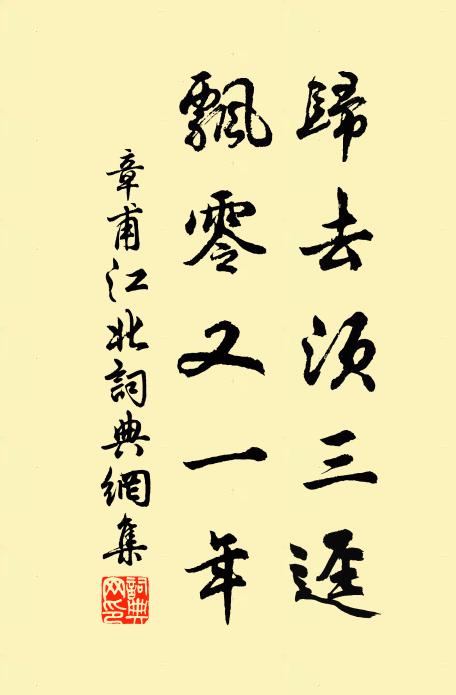 歸去須三逕
飄零又一年
章甫江北詞典網集
詞典网印